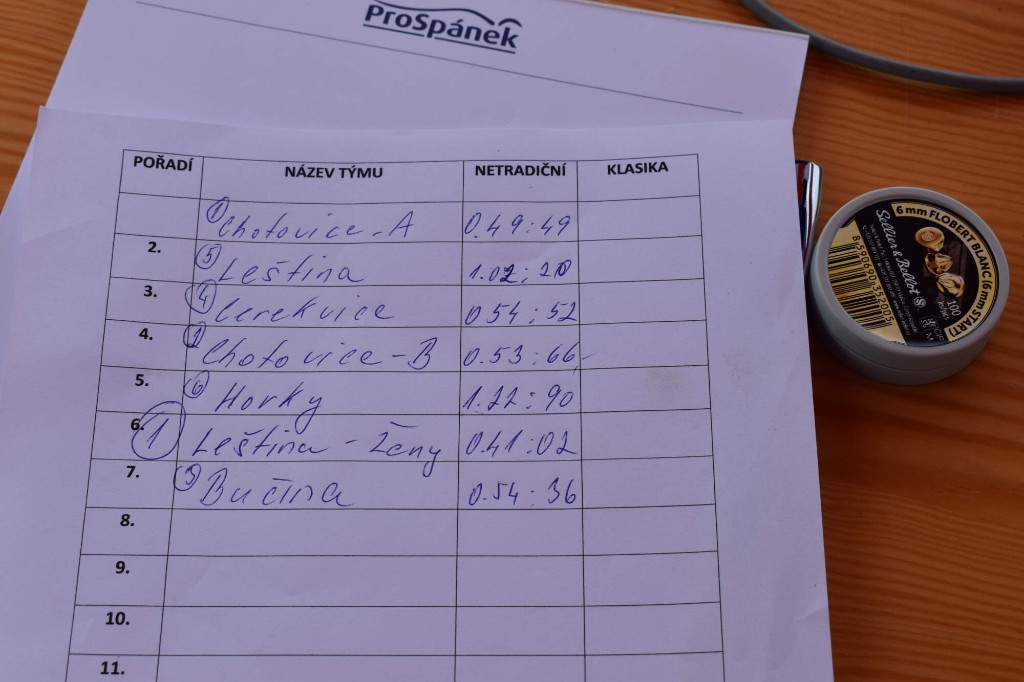 ProSpánek
POŘADÍ NÁZEV TÝMU NETRADIČNÍ KLASIKA
1 Chotovice-A 0.49:49
2. 5 Leština 1.02:20
3. 4 Cerekvice 0.54:52
4. 2 Chotovice-B 0.53:66
5. 6 Horky 1.22:90
6. 1 Leština - Ženy 0.41:02
7. 3 Bučina 0.54:36
8.
9.
10.
11.
6 mm FLOBERT BLANC (6 mm START)
Sellier & Bellot
100
8 590690 352005